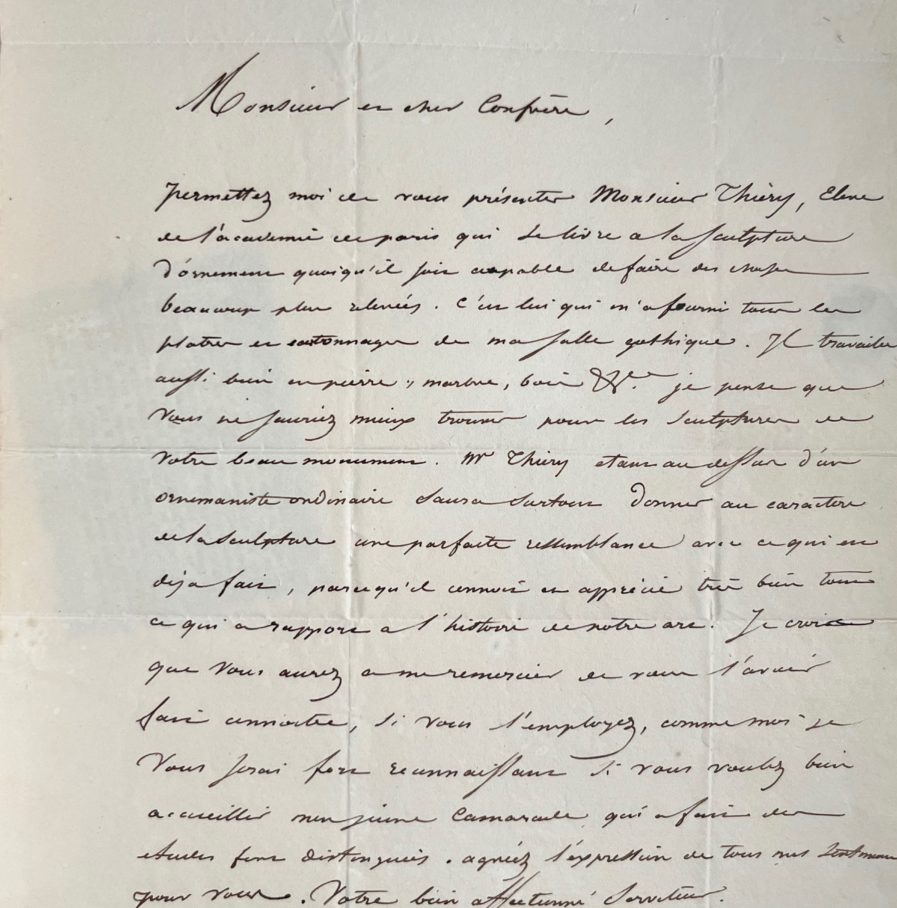 Monsieur et cher Confrère,
permettez moi de vous présenter Monsieur Thiéry, Eleve
de l'académie de paris qui se livre a la sculpture
d'ornement quoiqu'il soit capable de faire des choses
beaucoup plus relevées. C'est lui qui m'a fourni tous les
platres et cartonnages de ma salle gothique. Il travaille
aussi bien en pierre, marbre, bois &c. je pense que
vous ne sauriez mieux trouver pour les sculptures de
votre beau monument. Mr Thiéry etant au dessus d'un
ornemaniste ordinaire saura surtout donner au caractere
de la sculpture une parfaite ressemblance avec ce qui est
deja fait, parcequ'il connoit et apprécie très bien tout
ce qui a rapport a l'histoire de notre art. Je crois
que vous aurez a me remercier de vous l'avoir
fait connoitre, si vous l'employez, comme moi je
vous serai fort reconnaissant si vous voulez bien
accueillir mon jeune Camarade qui a fait des
etudes fort distinguées. agréez l'expression de tous mes sentimens
pour vous. Votre bien affectionné Serviteur.